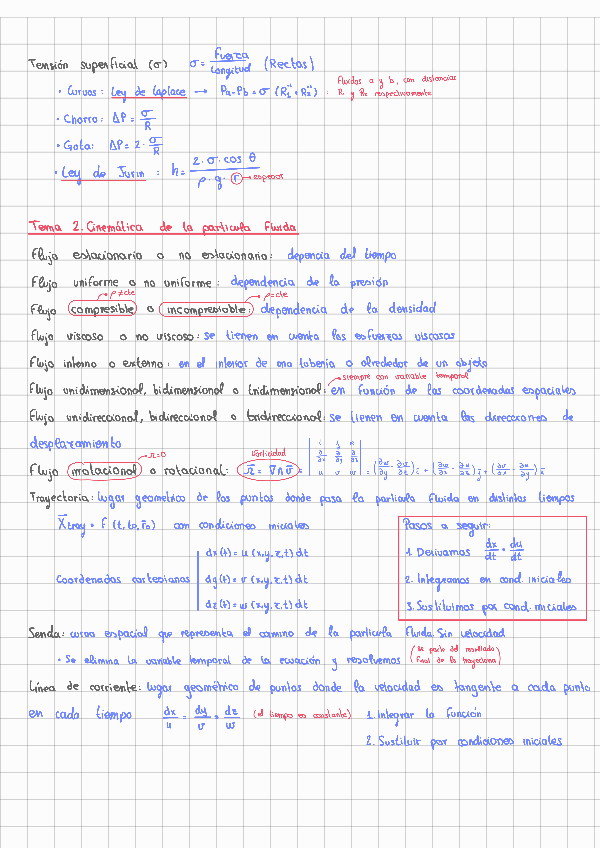 Tensión superficial (σ) σ = Fuerza / Longitud (Rectas)
• Curvas: Ley de Laplace → Pa - Pb = σ (R₁⁻¹ + R₂⁻¹) : Fluidos a y b, con distancias
R₁ y R₂ respectivamente
• Chorro: ΔP = σ / R
• Gota: ΔP = 2 · σ / R
• Ley de Jurin : h = 2 · σ · cos θ / ρ · g · r → espesor
Tema 2. Cinemática de la partícula fluida
Flujo estacionario o no estacionario: depencia del tiempo
Flujo uniforme o no uniforme: dependencia de la presión
→ ρ ≠ cte → ρ = cte
Flujo compresible o incompresiable: dependencia de la densidad
Flujo viscoso o no viscoso: se tienen en cuenta los esfuerzos viscosos
Flujo interno o externo: en el interior de una tubería o alrededor de un objeto
→ siempre con variable temporal
Flujo unidimensional, bidimensional o tridimensional: en función de las coordenadas espaciales
Flujo unidireccional, bidireccional o tridireccional: se tienen en cuenta las direcciones de
desplazamiento
→ Ω = 0 Vorticidad
Flujo irrotacional o rotacional: Ω = ∇∧v = | i j k ; ∂/∂x ∂/∂y ∂/∂z ; u v w | = (∂w/∂y - ∂v/∂z) i + (∂u/∂z - ∂w/∂x) j + (∂v/∂x - ∂u/∂y) k
Trayectoria: lugar geométrico de los puntos donde pasa la partícula fluida en distintos tiempos
X tray = f (t, t₀, r₀) con condiciones iniciales
Coordenadas cartesianas
dx(t) = u (x,y,z,t) dt
dy(t) = v (x,y,z,t) dt
dz(t) = w (x,y,z,t) dt
Pasos a seguir:
1. Derivamos dx/dt = du/dt
2. Integramos en cond. iniciales
3. Sustituimos por cond. iniciales
Senda: curva espacial que representa el camino de la partícula fluida. Sin velocidad
• Se elimina la variable temporal de la ecuación y resolvemos (Se parte del resultado
final de la trayectoria)
Línea de corriente: lugar geométrico de puntos donde la velocidad es tangente a cada punto
en cada tiempo dx/u = dy/v = dz/w (el tiempo es constante) 1. Integrar la función
2. Sustituir por condiciones iniciales